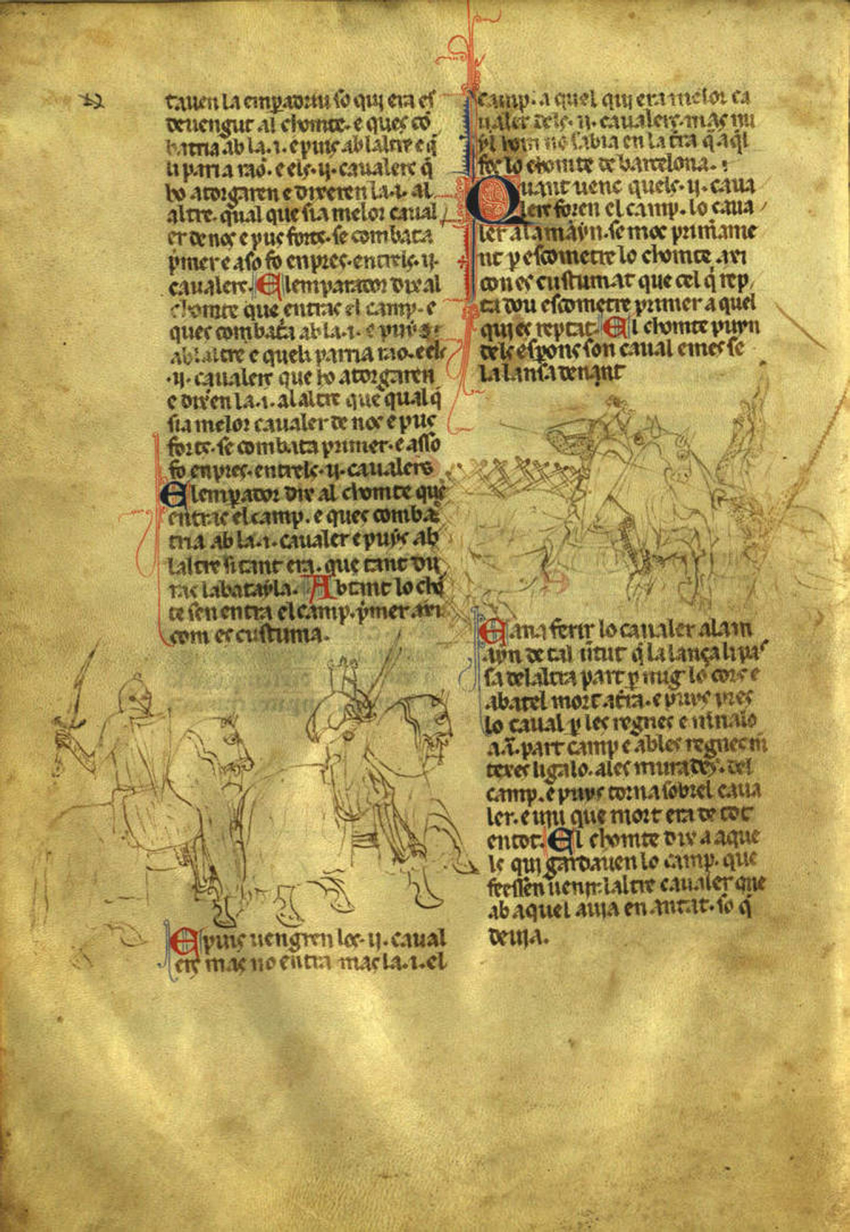 tauen la emperariu so qui era es
deuengut al chomte. e ques cō
batria ab la .i. e puis ab laltre e q̄
li patria raó. e els .ij. caualers q̄
ho atorgaren e dixeren la .i. al
altre. qual que sia melor caual
er de nos e pus forts. se combata
p̄mer e aso fo enpres. entrels .ij.
caualers. El emparador dix al
chomte que entras el camp. e
ques combata ab la .i. e puys
ab laltre e quels partria rao. e els
.ij. caualers que ho atorgaren
e dixeren la .i. al altre que qual q̄
sia melor caualer de nos e pus
forts. se combata primer. e asso
fo enpres. entrels .ij. caualers
El emperador dix al chomte que
entras el camp. e ques comba
tria ab la .i. caualer e puys ab
laltre si tant era. que tant du
ras la batayla. Ab tant lo chō
te sen entra el camp. p̄mer axi
com es custuma.
E puis uengren los .ij. caual
ers mas no entra mas la .i. el
camp. a quel qui era melor ca
ualer dels .ij. caualers. mas nu
yl hom no sabia en la t̄ra q̄ aq̄l
fos lo chomte de barcelona.
Quant uenc quels .ij. caua
lers foren el camp. lo caua
ler alamāyn. se moc primame
nt p escometre lo chomte. axi
con es custumat que cel q̄ rep
ta dou escometre primer a quel
qui es reptat. El chomte puyn
dels espons son caual e mes se
la lansa denant
E ana ferir lo caualer alam
ayn de tal uirtut q̄ la lança li pas
sa delaltra part p mig lo cors e
abatel mort a t̄ra. e puys pres
lo caual p les regnes e
a .i. part camp e ab les regnes
ligalo. a les murades. del
camp. e puys torna sobrel caua
ler. e uiu que mort era de tot
en tot. El chomte dix a aque
ls qui gardauen lo camp. que
feessen uenir laltre caualer que
ab aquel auia en antat. so q̄
deuia.